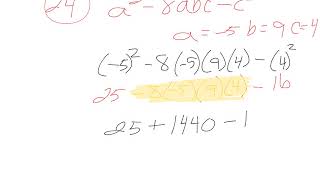 24) a² - 8abc - c²
a = -5 b = 9 c = 4
(-5)² - 8(-5)(9)(4) - (4)²
25 - 8(-5)(9)(4) - 16
25 + 1440 - 1